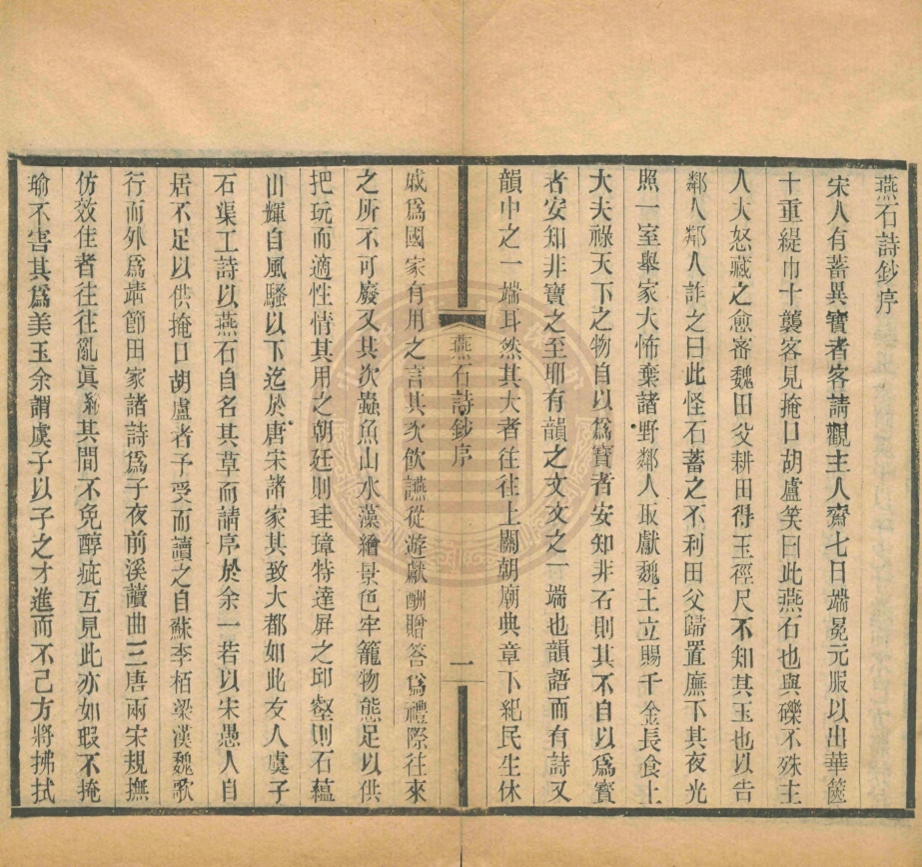 燕石詩鈔序
宋人有蓄異寶者客請觀主人齋七日端冕元服以出華篋
十重緹巾十襲客見掩口胡盧笑曰此燕石也與礫不殊主
人大怒藏之愈審魏田父耕田得玉徑尺不知其玉也以告
鄰人鄰人詐之曰此怪石蓄之不利田父歸置廡下其夜光
照一室舉家大怖棄諸野鄰人取獻魏王立賜千金長食上
大夫祿天下之物自以爲寶者安知非石則其不自以爲寶
者安知非寶之至耶有韻之文文之一端也韻語而有詩又
韻中之一端耳然其大者往往上關朝廟典章下紀民生休
燕石詩鈔序
一
戚爲國家有用之言其次飲讌從游獻酬贈答爲禮際往來
之所不可廢又其次蟲魚山水藻繪景色牢籠物態足以供
把玩而適性情其用之朝廷則珪璋特達屏之邱壑則石蘊
山輝自風騷以下迄於唐宋諸家其致大都如此友人虞子
石渠工詩以燕石自名其草而請序於余一若以宋愚人自
居不足以供掩口胡盧者予受而讀之自蘇李栢梁漢魏歌
行而外爲靖節田家諸詩爲子夜前溪讀曲三唐兩宋規撫
仿效佳者往往亂眞紛其間不免醇疵互見此亦如瑕不掩
瑜不害其爲美玉余謂虞子以子之才進而不已方將拂拭